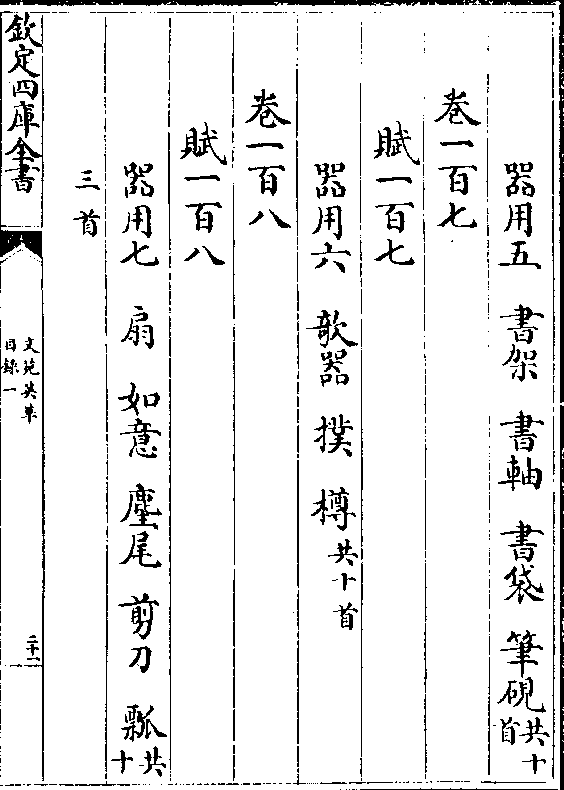 器用五 書架 書軸 書袋 筆硯 共十首
卷一百七
賦一百七
器用六 欹器 撲 樽 共十首
卷一百八
賦一百八
器用七 扇 如意 塵尾 剪刀 瓢 共十
三首
欽定四庫全書
文苑英華
目録一
二十一